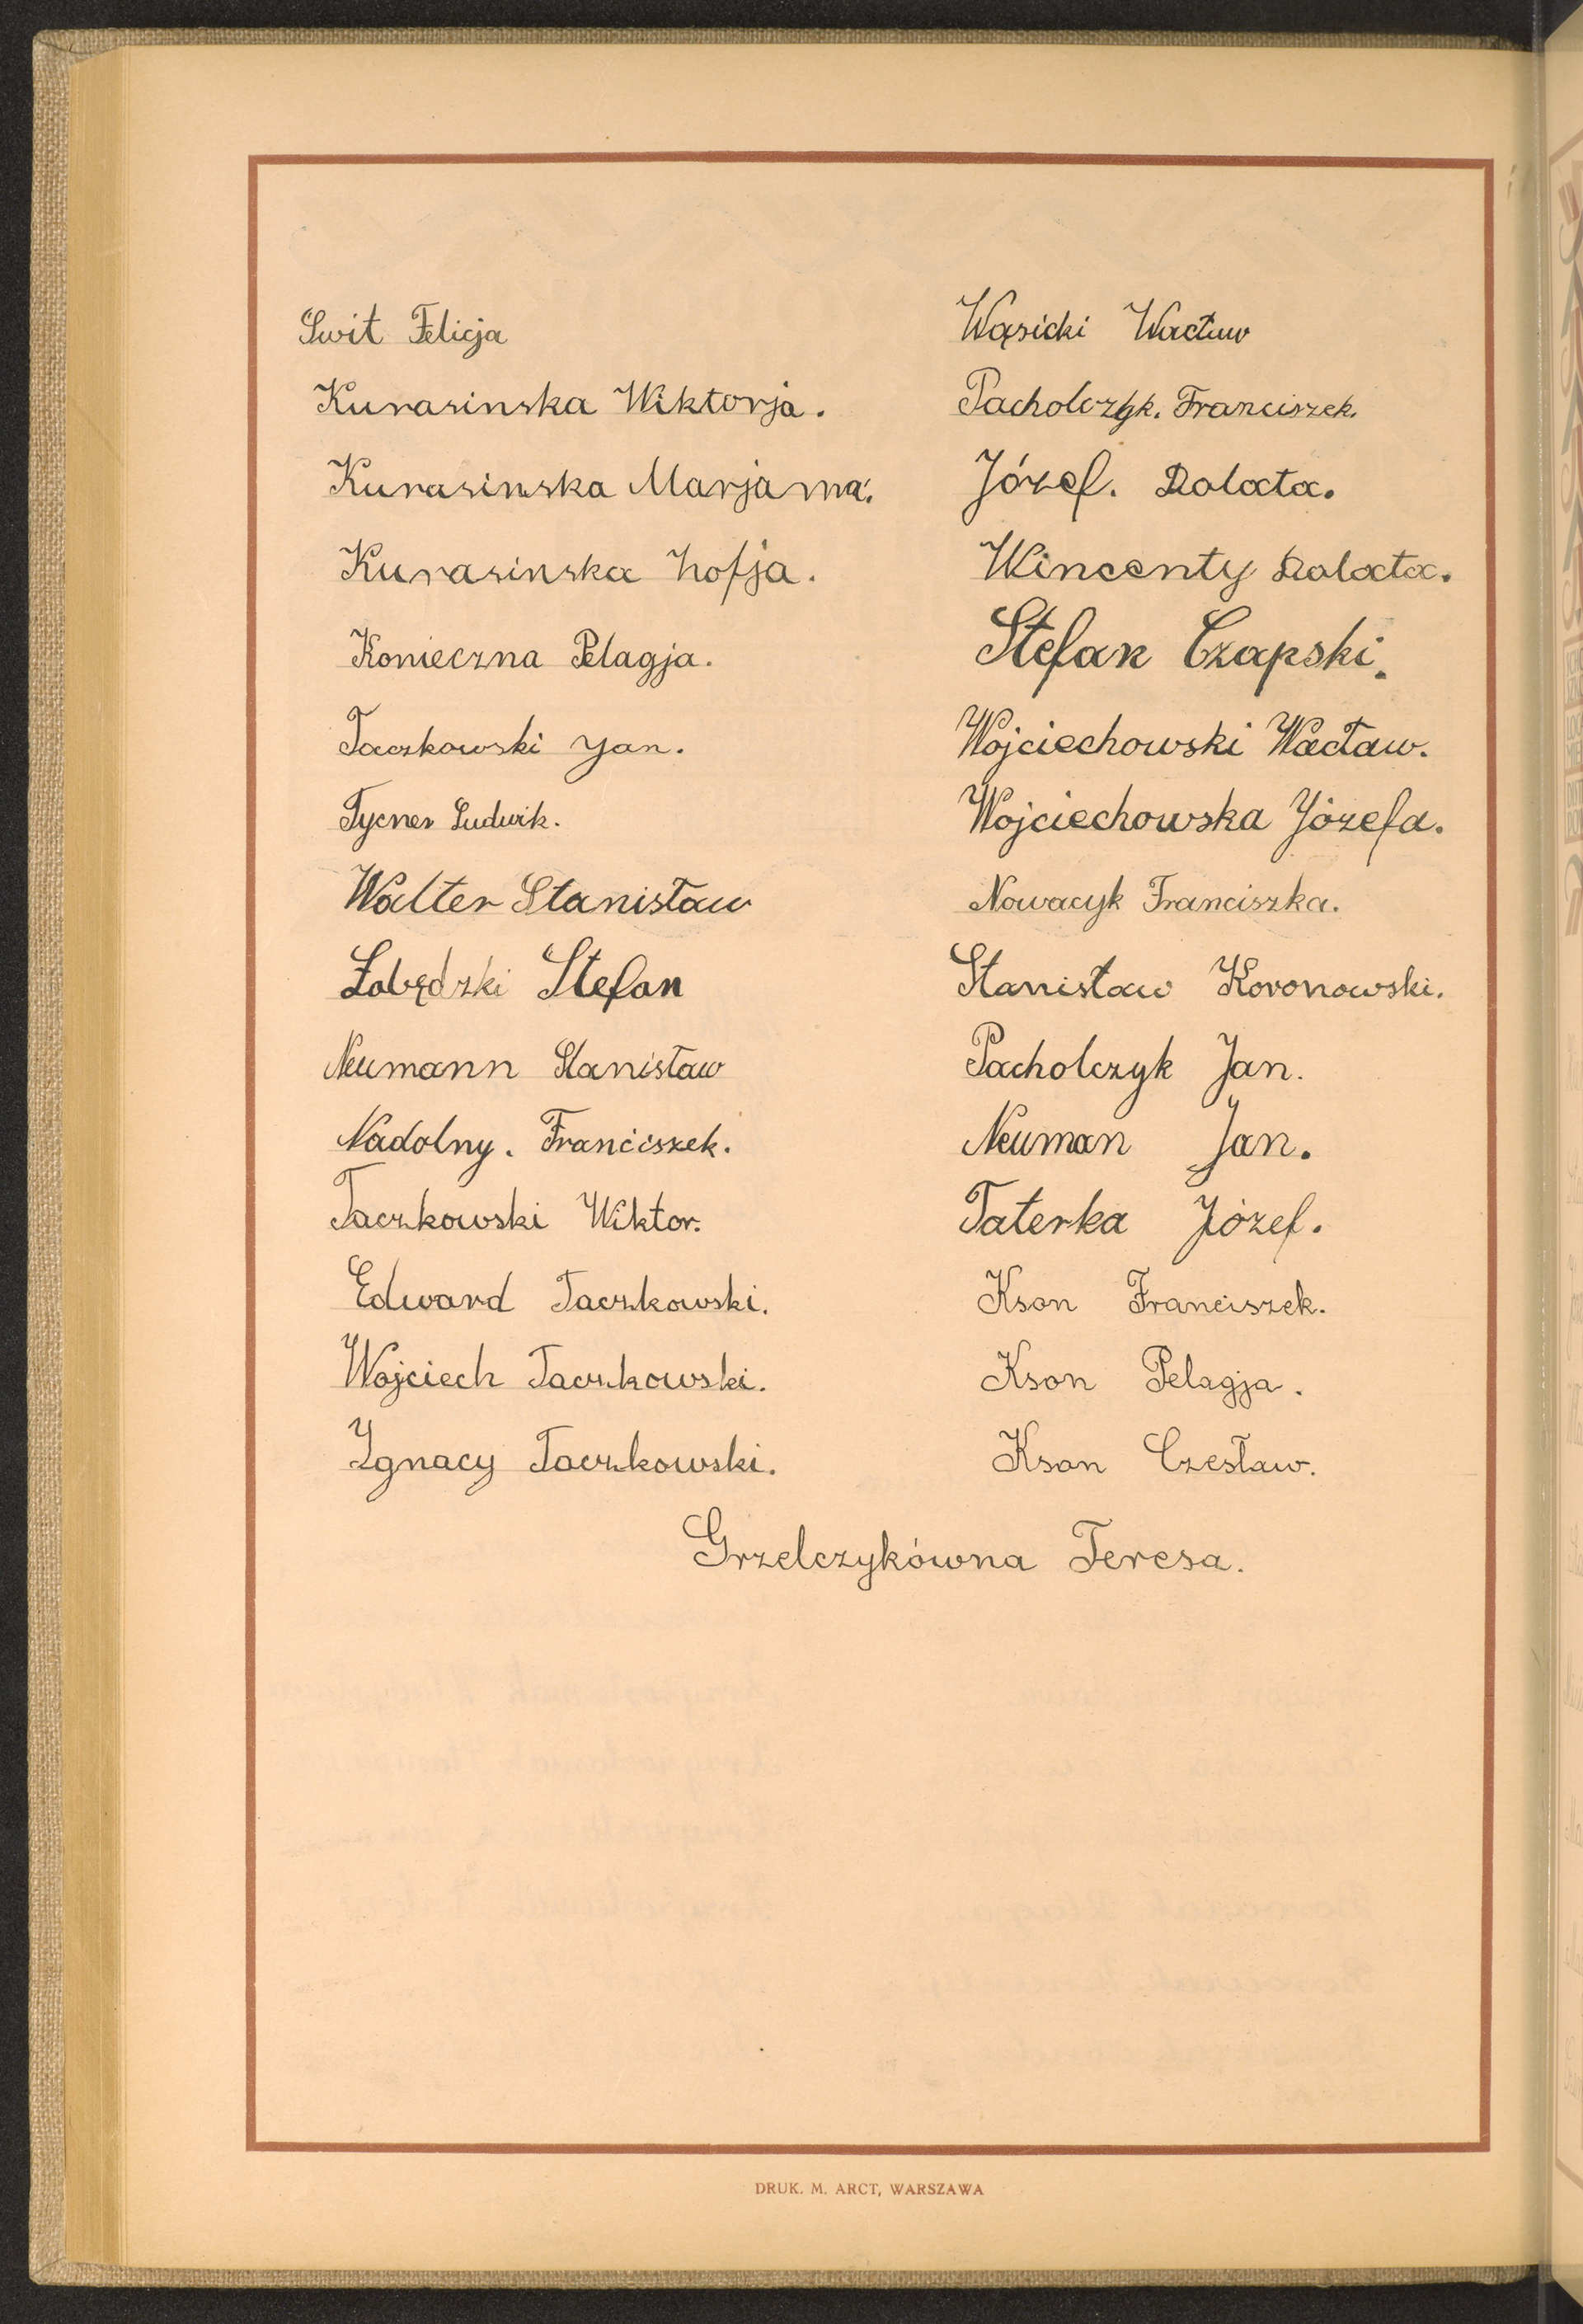 Swit Felicja
Kurasinska Wiktorja.
Kurasinska Marjanna.
Kurasinska Zofja.
Konieczna Pelagja.
Taczkowski Jan.
Tycner Ludwik.
Walter Stanisław
Łabędzki Stefan
Neumann Stanisław
Nadolny. Franciszek.
Taczkowski Wiktor.
Edward Taczkowski.
Wojciech Taczkowski.
Ignacy Taczkowski.
Wąsicki Wacław
Pacholczyk. Franciszek.
Józef. Dolata.
Wincenty Dolata.
Stefan Czapski.
Wojciechowski Wacław.
Wojciechowska Józefa.
Nowacyk Franciszka.
Stanisław Koronowski.
Pacholczyk Jan.
Neuman Jan.
Taterka Józef.
Kson Franciszek.
Kson Pelagja.
Kson Czesław.
Grzelczykówna Teresa.
DRUK. M. ARCT, WARSZAWA